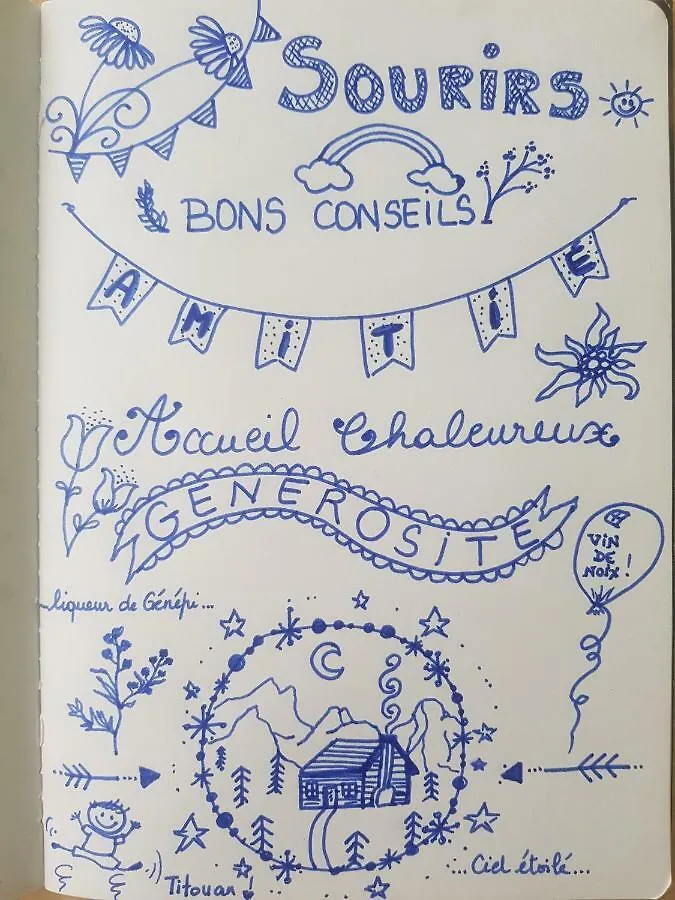 SOURIRS
BONS CONSEILS
AMiTiÉ
Accueil Chaleureux
GENEROSITE
ViN
DE
NOiX!
liqueur de Génépi...
Titouan!
... Ciel étoilé...